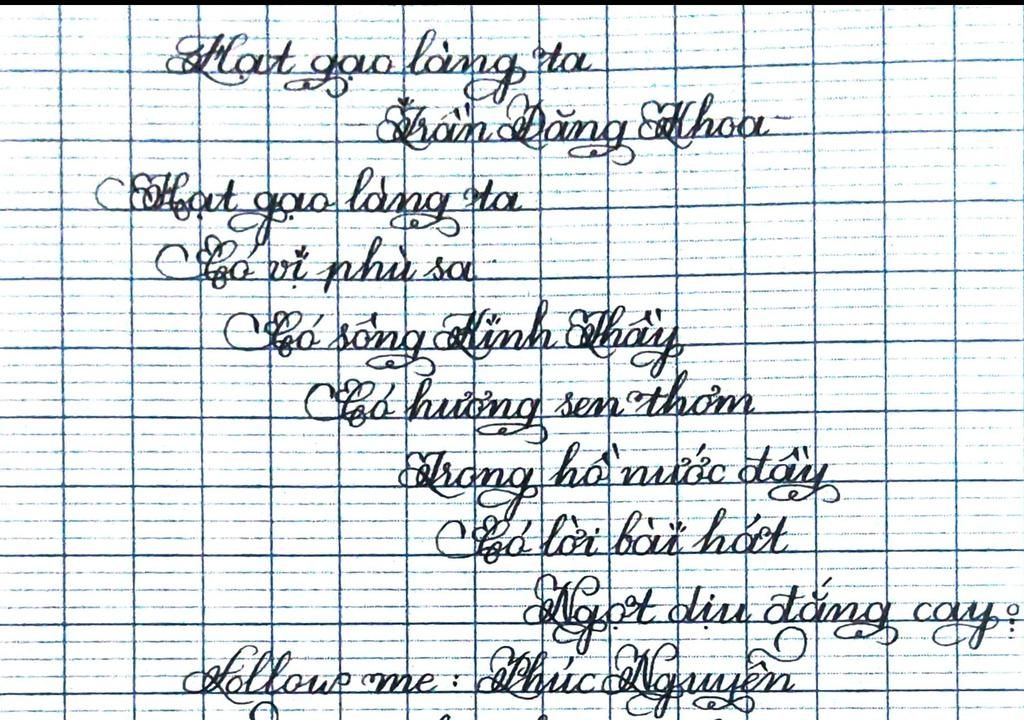 Hạt gạo làng ta
Trần Đăng Khoa
Hạt gạo làng ta
Có vị phù sa
Có sông Kinh Thầy
Có hương sen thơm
Trong hồ nước đầy
Có lời bài hát
Ngọt dịu đắng cay:
Follow me: Phúc Nguyễn